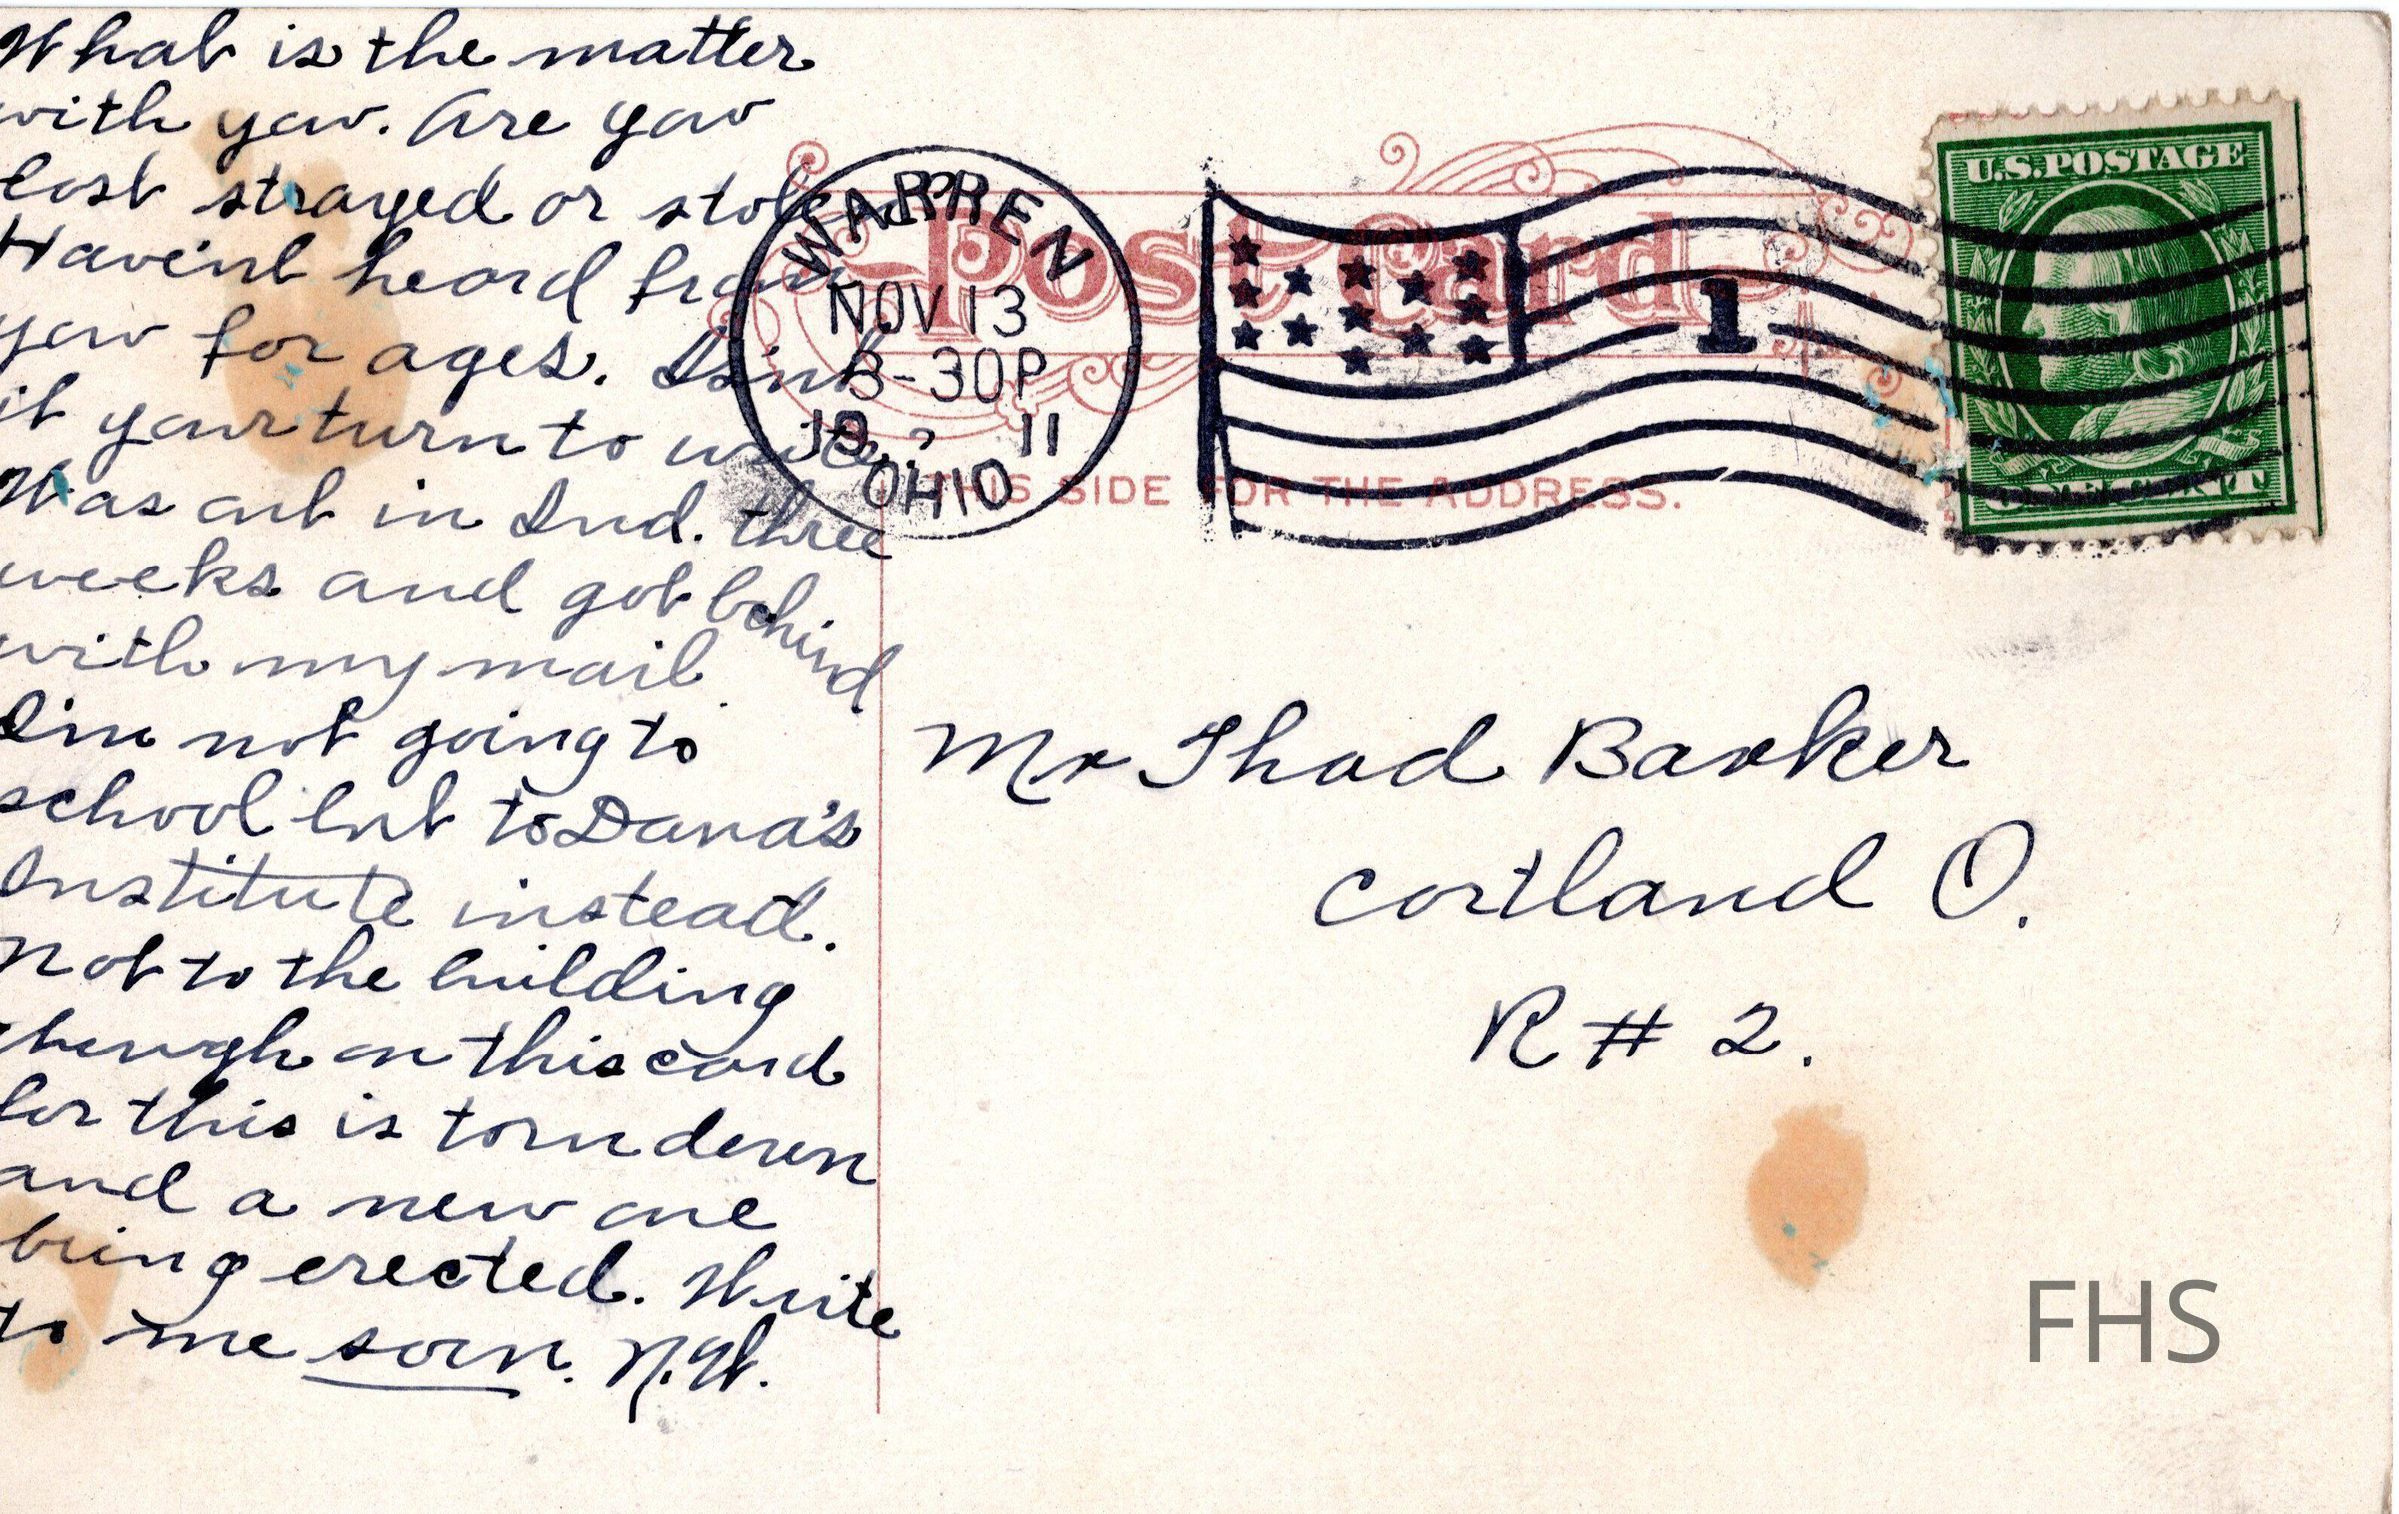 What is the matter
with you. Are you
lost strayed or stolen?
Haven't heard from
you for ages. Isn't
it your turn to write?
Was out in Ind. three
weeks and got behind
with my mail.
I'm not going to
school but to Dana's
Institute instead.
Not to the building
though on this card
for this is torn down
and a new one
being erected. Write
to me soon. N.W.
WARREN
NOV 13
8-30P
19 11
OHIO
Post Card
1
THIS SIDE FOR THE ADDRESS.
U.S. POSTAGE
Mr Thad Barker
Cortland O.
R # 2.
FHS